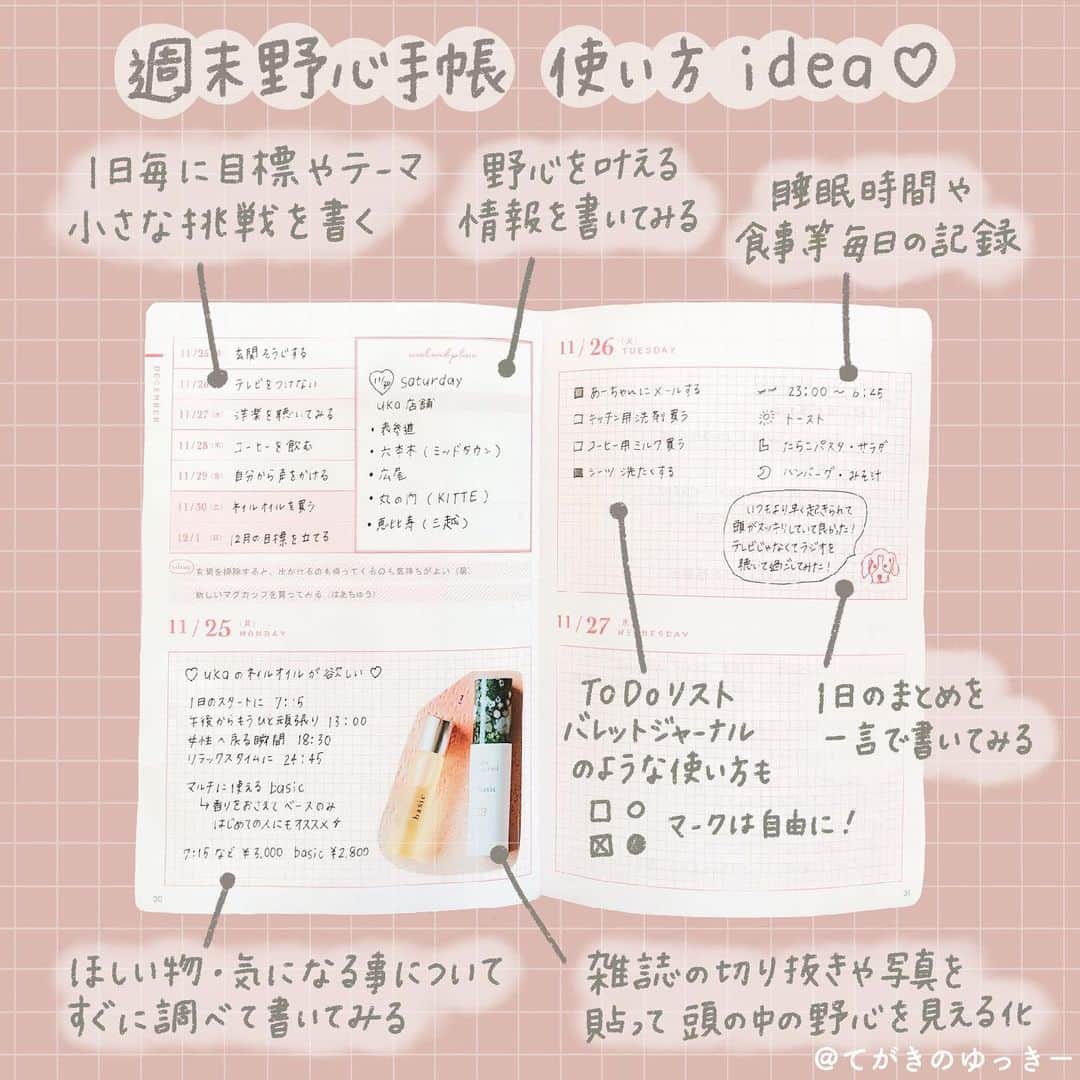 週末野心手帳 使い方 idea♡
1日毎に目標やテーマ
小さな挑戦を書く
野心を叶える
情報を書いてみる
睡眠時間や
食事等毎日の記録
DECEMBER
11/25 玄関そうじする
11/26 テレビをつけない
11/27 (水) 洋楽を聴いてみる
11/28 (木) コーヒーを飲む
11/29 (金) 自分から声をかける
11/30 (土) ネイルオイルを買う
12/1 (日) 12月の目標を立てる
11/30 saturday
uka 店舗
・表参道
・六本木 (ミッドタウン)
・広尾
・丸の内 (KITTE)
・恵比寿 (三越)
玄関を掃除すると、出かけるのも帰ってくるのも気持ちがよい
新しいマグカップを買ってみる (はあちゅう)
11/25 (月) MONDAY
♡ ukaのネイルオイルが欲しい ♡
1日のスタートに 7:15
午後からもうひと頑張り 13:00
女性へ戻る瞬間 18:30
リラックスタイムに 24:45
マルチに使える basic
↳香りをおさえてベースのみ
はじめての人にもオススメ
7:15 など ¥3,000 basic ¥2,800
basic
30
11/26 (火) TUESDAY
■ あーちゃんにメールする
□ キッチン用洗剤買う
□ コーヒー用ミルク買う
■ シーツ洗たくする
23:00 〜 6:45
トースト
たらこパスタ・サラダ
ハンバーグ・みそ汁
いつもより早く起きられて
頭がスッキリしていて良かった!
テレビじゃなくてラジオを
聴いて過ごしてみた!
11/27 WEDNESDAY
ToDoリスト
バレットジャーナル
のような使い方も
マークは自由に!
1日のまとめを
一言で書いてみる
31
ほしい物・気になる事について
すぐに調べて書いてみる
雑誌の切り抜きや写真を
貼って頭の中の野心を見える化
@てがきのゆっきー